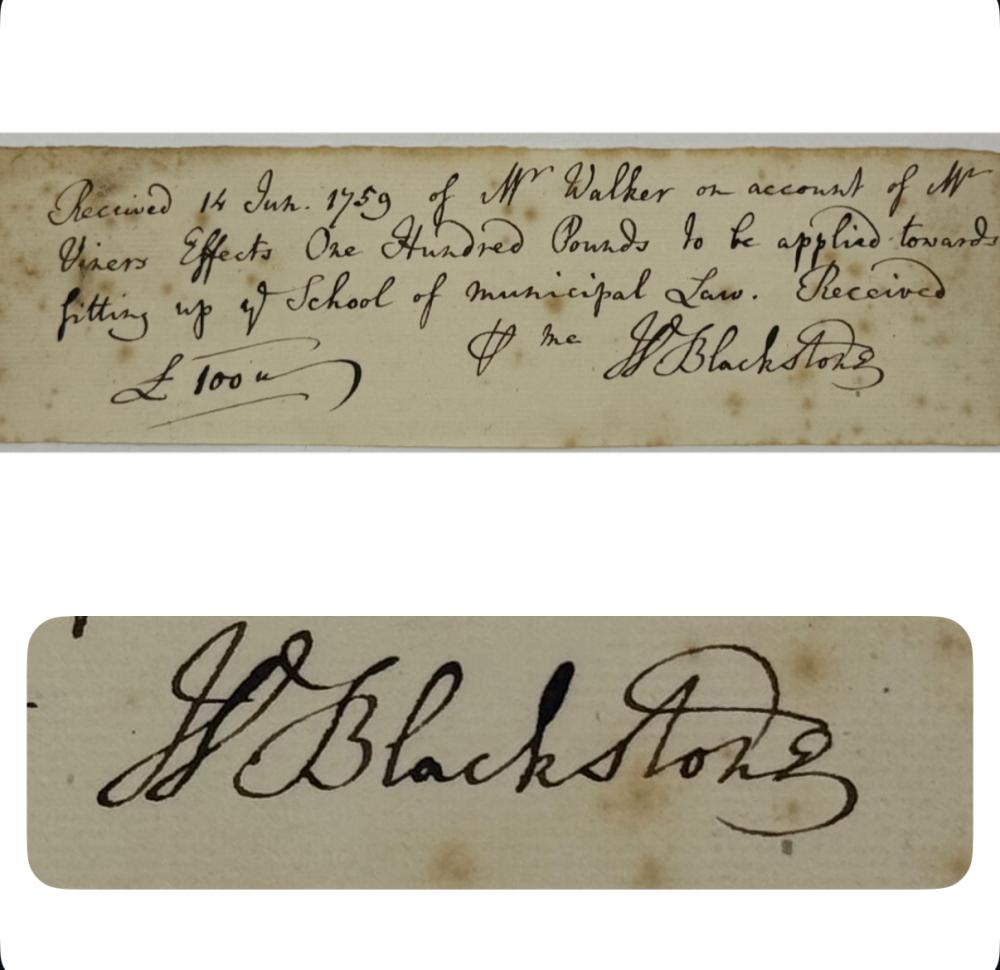 Received 14 Jun. 1759 of Mr Walker on account of Mr
Viners Effects One Hundred Pounds to be applied towards
fitting up ye School of municipal Law. Received
£ 100 " ⅌ me Wm Blackstone
Wm Blackstone